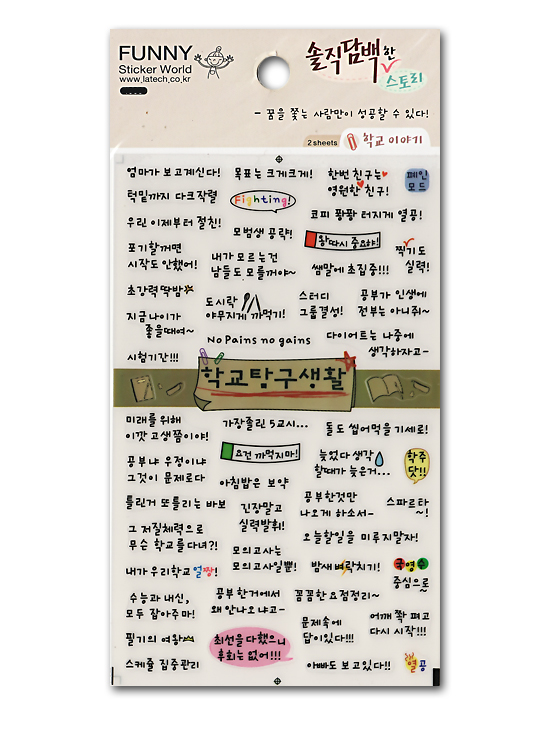 FUNNY
Sticker World
www.latech.co.kr
솔직담백한
스토리
- 꿈을 쫓는 사람만이 성공할 수 있다!
2 sheets
학교 이야기
엄마가 보고계신다!
목표는 크게크게!
한번 친구는
영원한 친구!
폐인
모드
턱밑까지 다크작렬
Fighting!
코피 퐝퐝 터지게 열공!
우리 이제부터 절친!!
모범생 공략!
왕따시 중요해!
찍기도
실력!
포기할꺼면
시작도 안했어!
내가 모르는건
남들도 모를꺼야~
쌤말에 초집중!!!
초강력 딱밤
도시락
야무지게 까먹기!
스터디
그룹결성!
공부가 인생에
전부는 아니쥐~
지금나이가
좋을때여~
No Pains no gains
다이어트는 나중에
생각하자고-
시험기간!!!
학교탐구생활
미래를 위해
이깟 고생쯤이야!
가장졸린 5교시...
돌도 씹어먹을 기세로!
요건 까먹지마!
늦었다 생각
할때가 늦은거...
학주
닷!!
공부냐 우정이냐
그것이 문제로다
아침밥은 보약
틀린거 또틀리는 바보
긴장말고
실력발휘!
공부한것만
나오게 하소서-
스파르타
~!
그 저질체력으로
무슨 학교를 다녀?!
오늘할일을 미루지말자!
모의고사는
모의고사일뿐!
내가 우리학교 얼짱!
밤새 벼락치기!
국영수
중심으로
수능과 내신,
모두 잡아주마!
공부한거에서
왜 안나오냐고-
꼼꼼한 요점정리~
문제속에
답이있다!!!
어깨 쫙 펴고
다시 시작!!!
필기의 여왕
최선을 다했으니
후회는 없어!!!
스케줄 집중관리
아빠도 보고있다!!
열공